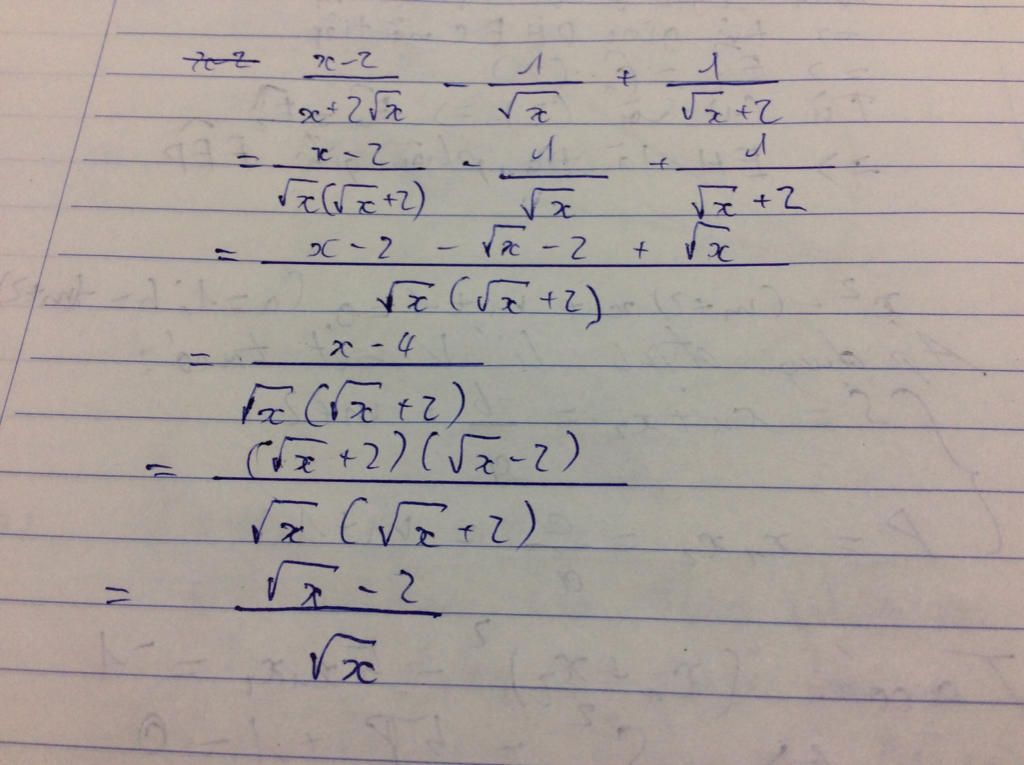 x-2 / x+2√x - 1/√x + 1/√x+2
= x-2 / √x(√x+2) - 1/√x + 1/√x+2
= x-2 - √x-2 + √x / √x(√x+2)
= x-4 / √x(√x+2)
= (√x+2)(√x-2) / √x(√x+2)
= √x-2 / √x